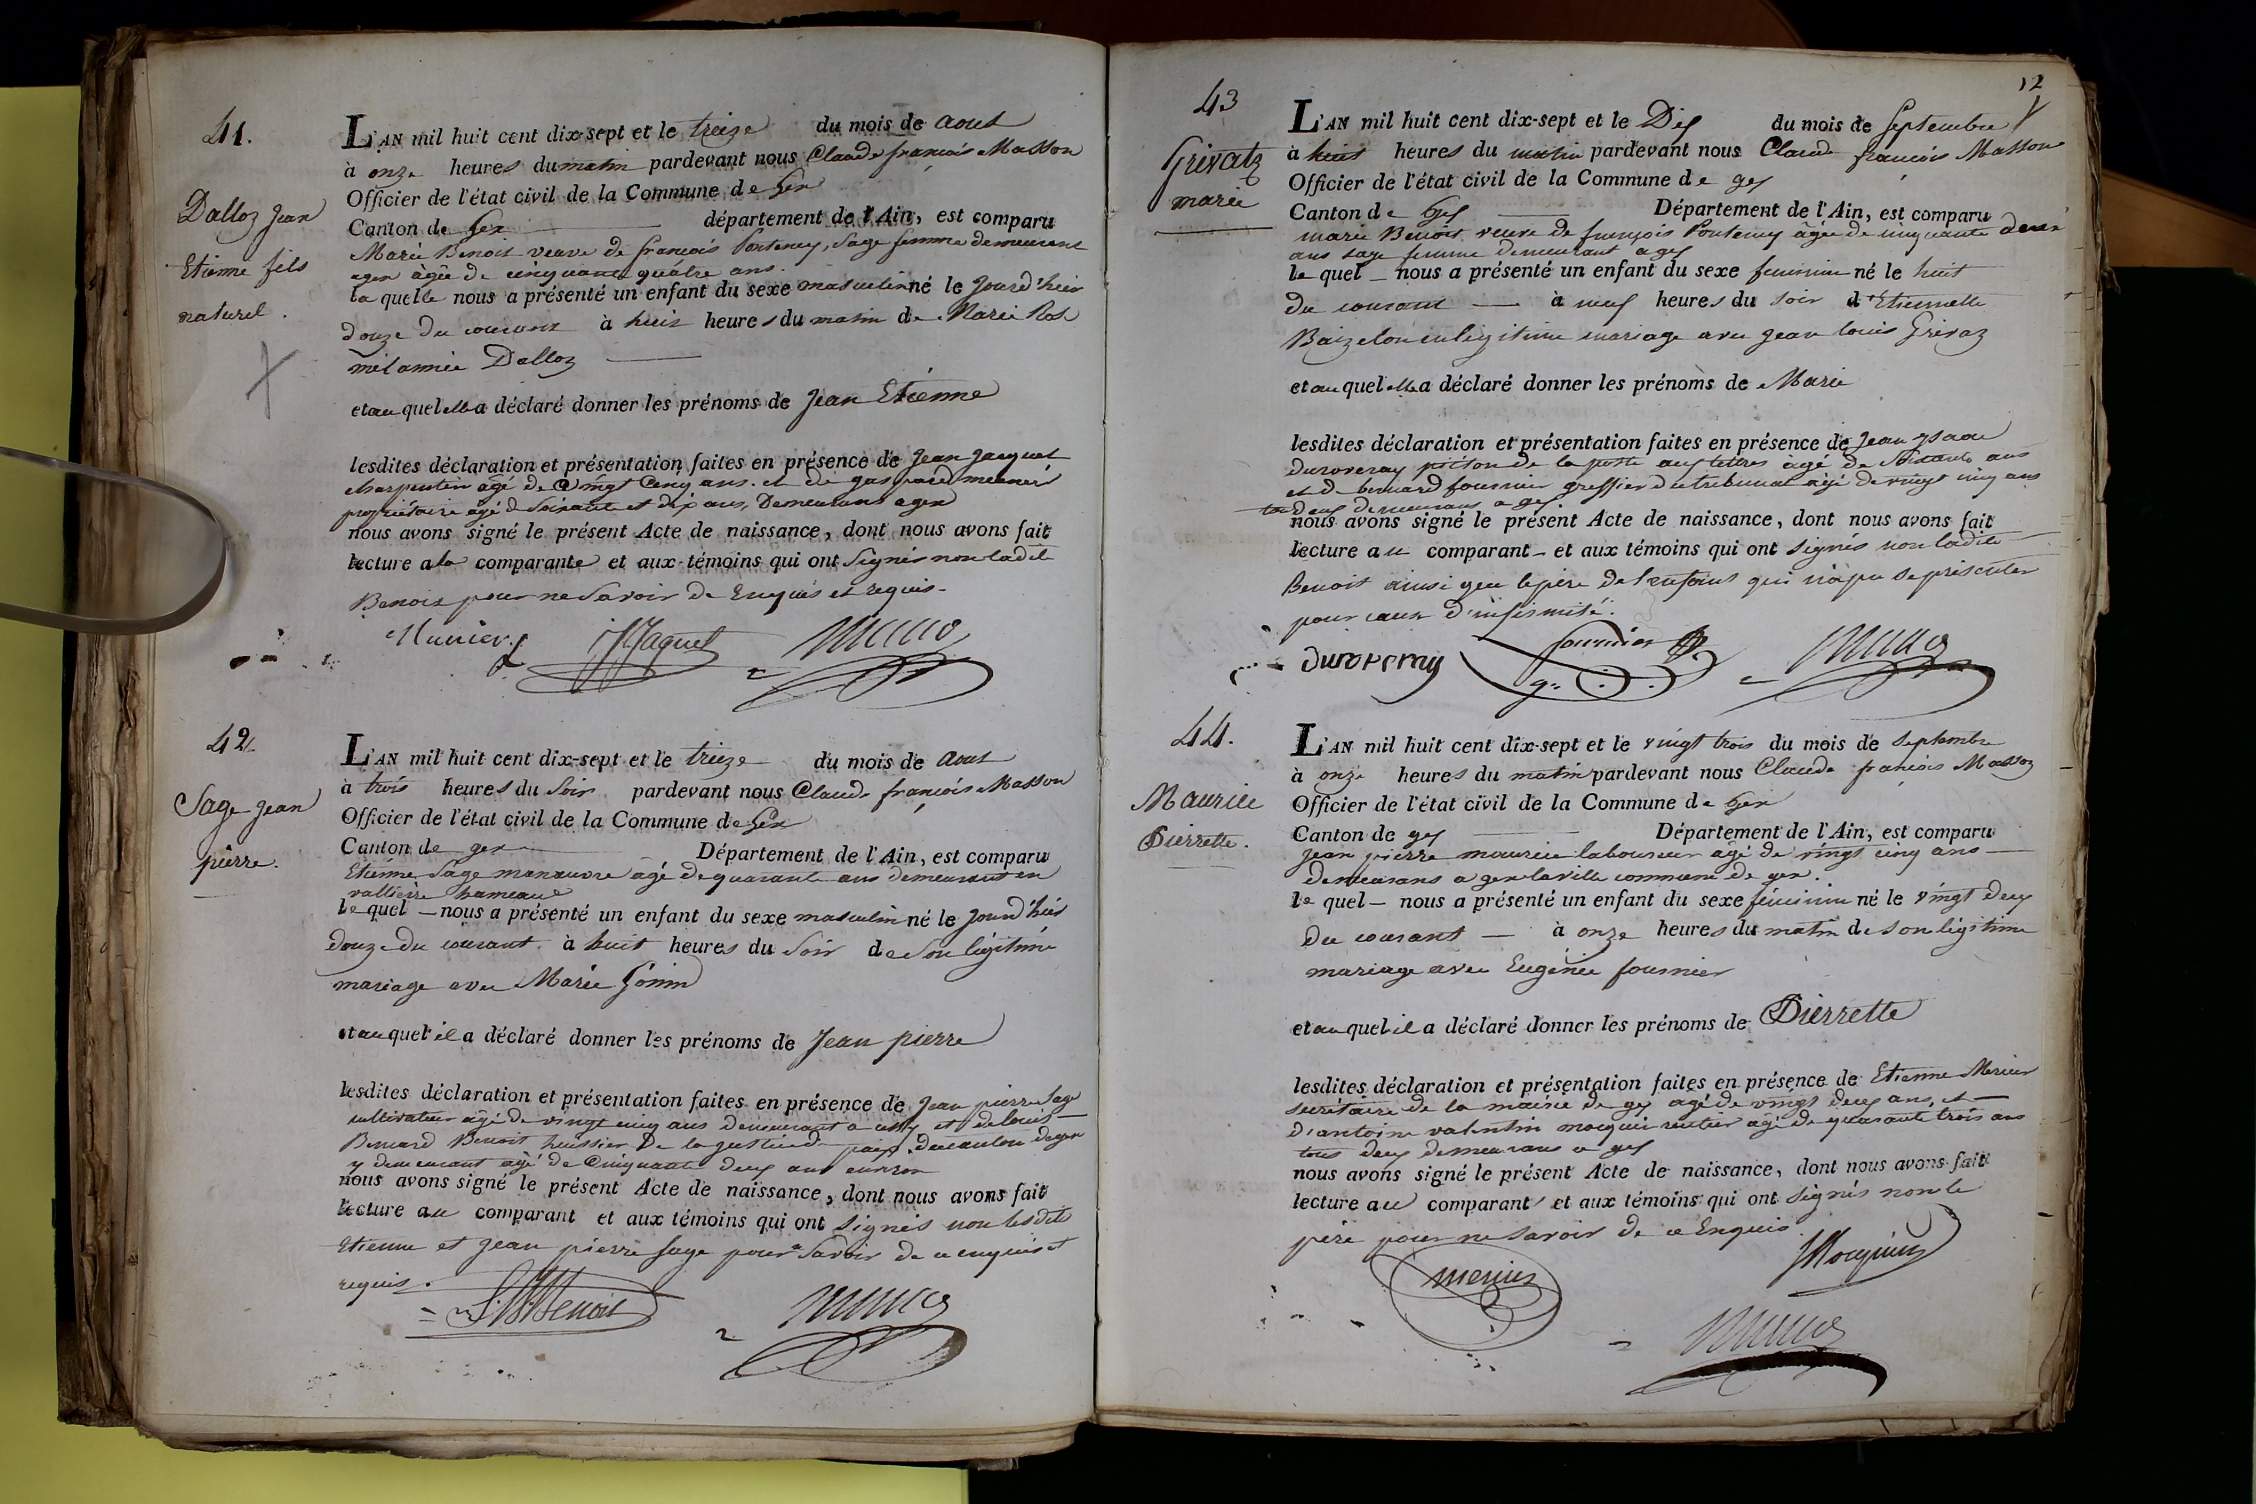 41.
Dalloz Jean
Etienne fils
naturel.
L'AN mil huit cent dix-sept et le treize du mois de aout
à onze heures du matin pardevant nous Claude françois Masson
Officier de l'état civil de la Commune de Gex
Canton de Gex département de l'Ain, est comparu
Marie Benoit veuve de françois Ponteney, Sage femme demeurant
a gex âgée de cinquante quatre ans.
la quelle nous a présenté un enfant du sexe masculin né le Jourd'huis
douze du courant à huit heures du matin de Marie Rose
mélannie Dalloz
et au quel elle a déclaré donner les prénoms de Jean Etienne
lesdites déclaration et présentation faites en présence de Jean Jacquet
charpentier âgé de vingt Cinq ans. et de gaspard meunier
propriétaire âgé de Soixante et dix ans, Demeurans a gex
nous avons signé le présent Acte de naissance, dont nous avons fait
lecture a la comparante et aux témoins qui ont Signés non ladite
Benoit pour ne Savoir de Enquis et requis.
Munier JJaquet
42.
Sage Jean
pierre.
L'AN mil huit cent dix-sept et le treize du mois de aout
à trois heures du Soir pardevant nous Claude françois Masson
Officier de l'état civil de la Commune de Gex
Canton de gex Département de l'Ain, est comparu
Etienne Sage manœuvre âgé de quarante ans demeurant en
hameau
le quel nous a présenté un enfant du sexe masculin né le Jourd'huis
douze du courant. à huit heures du Soir de Son légitime
mariage avec Marie Gonin
et au quel il a déclaré donner les prénoms de Jean pierre
lesdites déclaration et présentation faites en présence de Jean pierre Sage
cultivateur âgé de vingt cinq ans demeurant a cessy et de louis
Bernard Benoit huissier De la justice de paix du canton de gex
y demeurant âgé de Cinquante deux ans environ
nous avons signé le présent Acte de naissance, dont nous avons fait
lecture au comparant et aux témoins qui ont signés non lesdits
Etienne et Jean pierre Sage pour Savoir de ce enquis et
requis.
L.B.Benoit
12
43
Grivatz
marie
L'AN mil huit cent dix-sept et le Dix du mois de Septembre
à huit heures du matin pardevant nous Claude françois Masson
Officier de l'état civil de la Commune de gex
Canton de Gex Département de l'Ain, est comparu
marie Benoit veuve de françois Ponteney âgée de cinquante deux
ans sage femme demeurant a gex
le quel nous a présenté un enfant du sexe feminin né le huit
du courant à neuf heures du soir d'Etiennette
Baizelon en légitime mariage avec Jean louis Grivaz
et au quel elle a déclaré donner les prénoms de Marie
lesdites déclaration et présentation faites en présence de Jean ysaac
duroveray piéton de la poste aux lettres âgé de Soixante ans
et de bernard fournier greffier du tribunal âgé de vingt cinq ans
tous deux demeurans a gex
nous avons signé le présent Acte de naissance, dont nous avons fait
lecture au comparant et aux témoins qui ont signés non ladite
Benoit ainsi que le père de l'enfant qui n'a pu se présenter
pour cause d'infirmité.
duroveray fournier
44.
Maurice
Pierrette.
L'AN mil huit cent dix-sept et le vingt trois du mois de septembre
à onze heures du matin pardevant nous Claude françois Masson
Officier de l'état civil de la Commune de Gex
Canton de gex Département de l'Ain, est comparu
Jean pierre maurice laboureur âgé de vingt cinq ans
demeurans a gex la ville commune de gex.
le quel nous a présenté un enfant du sexe féminin né le vingt deux
du courant à onze heures du matin de son légitime
mariage avec Eugénie fournier
et au quel il a déclaré donner les prénoms de Pierrette
lesdites déclaration et présentation faites en présence de Etienne Merier
secrétaire de la mairie de gex agé de vingt deux ans, et
d'antoine valentin mocquin rentier âgé de quarante trois ans
tous deux demeurans a gex
nous avons signé le présent Acte de naissance, dont nous avons fait
lecture au comparant et aux témoins qui ont signés non le
père pour ne savoir de ce Enquis.
merier Mocquin